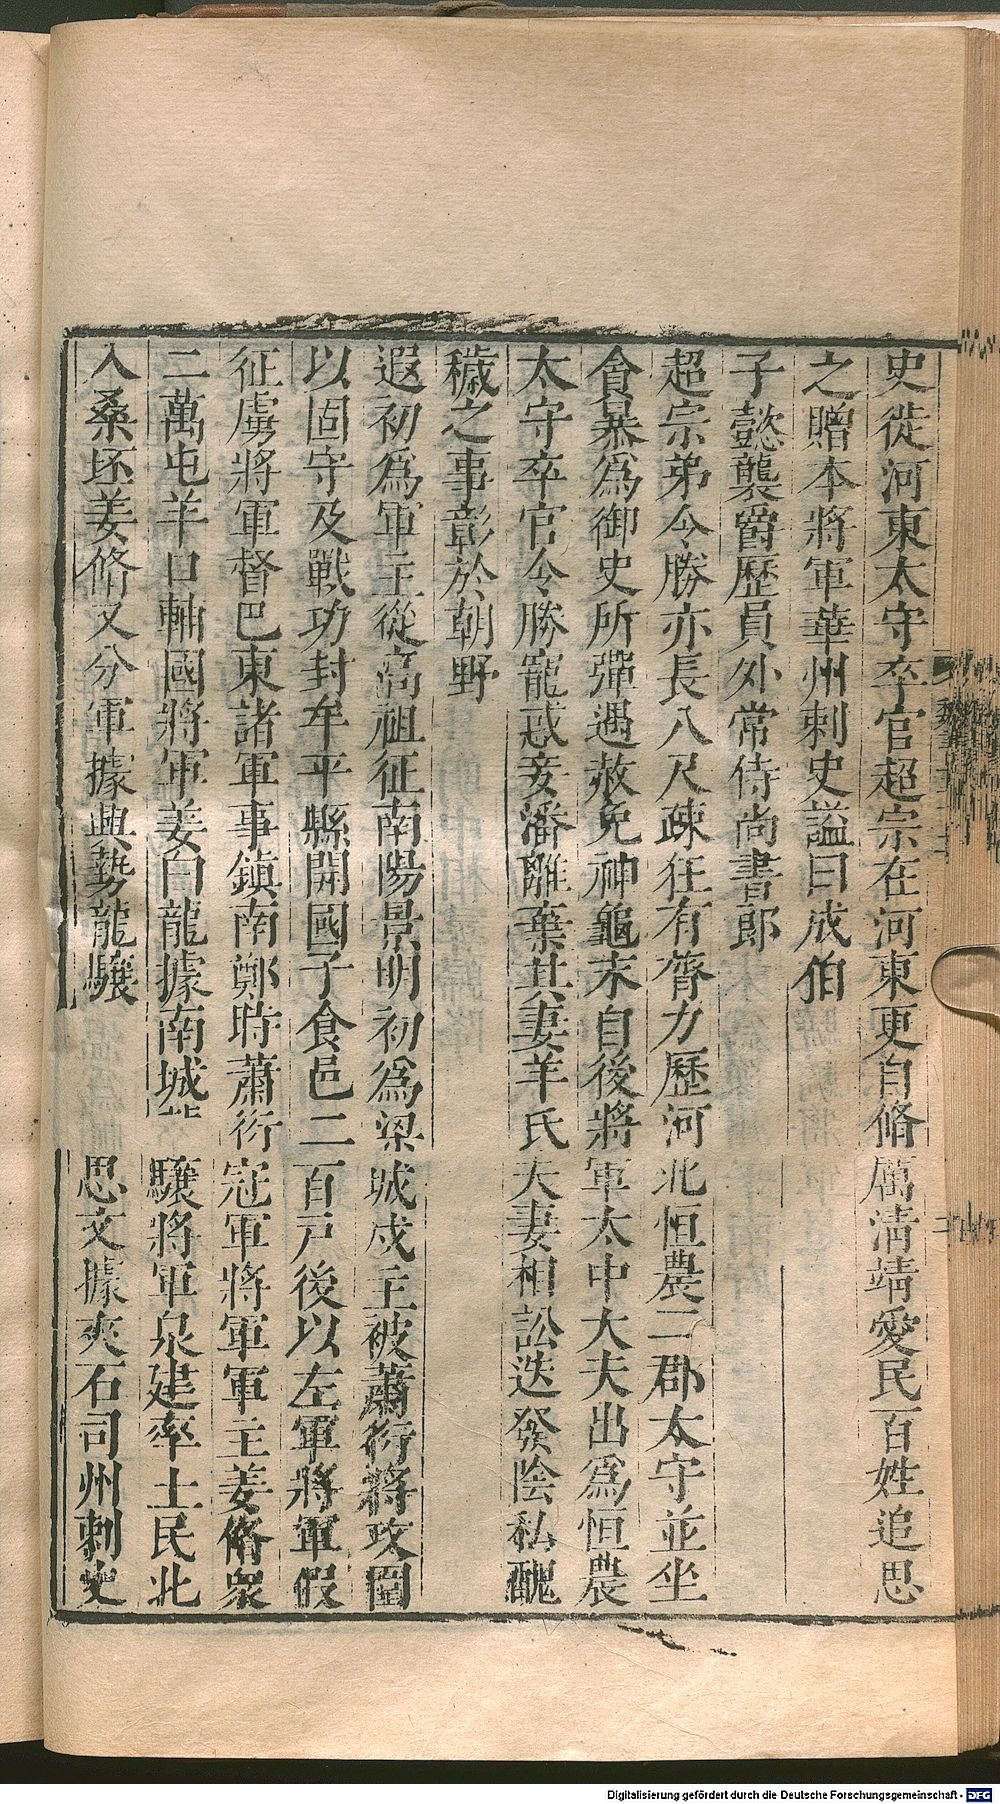 史徙河東太守卒官超宗在河東更自脩厲清靖愛民百姓追思
之贈本將軍華州刺史謚曰成伯
子懿襲爵歷員外常侍尚書郎
超宗弟令勝亦長八尺疎狂有膂力歷河北恒農二郡太守並坐
貪暴爲御史所彈遇赦免神龜末自後將軍太中大夫出爲恒農
太守卒官令勝寵惑妾潘離棄其妻羊氏夫妻相訟迭發陰私醜
穢之事彰於朝野
遐初爲軍主從高祖征南陽景明初爲梁城戍主被蕭衍將攻圍
以固守及戰功封牟平縣開國子食邑二百戶後以左軍將軍假
征虜將軍督巴東諸軍事鎮南鄭時蕭衍冠軍將軍軍主姜脩衆
二萬屯羊口輔國將軍姜白龍據南城龍驤將軍泉建率土民北
入桑坯姜脩又分軍據興勢龍驤思文據夾石司州刺史
Digitalisierung gefördert durch die Deutsche Forschungsgemeinschaft - DFG